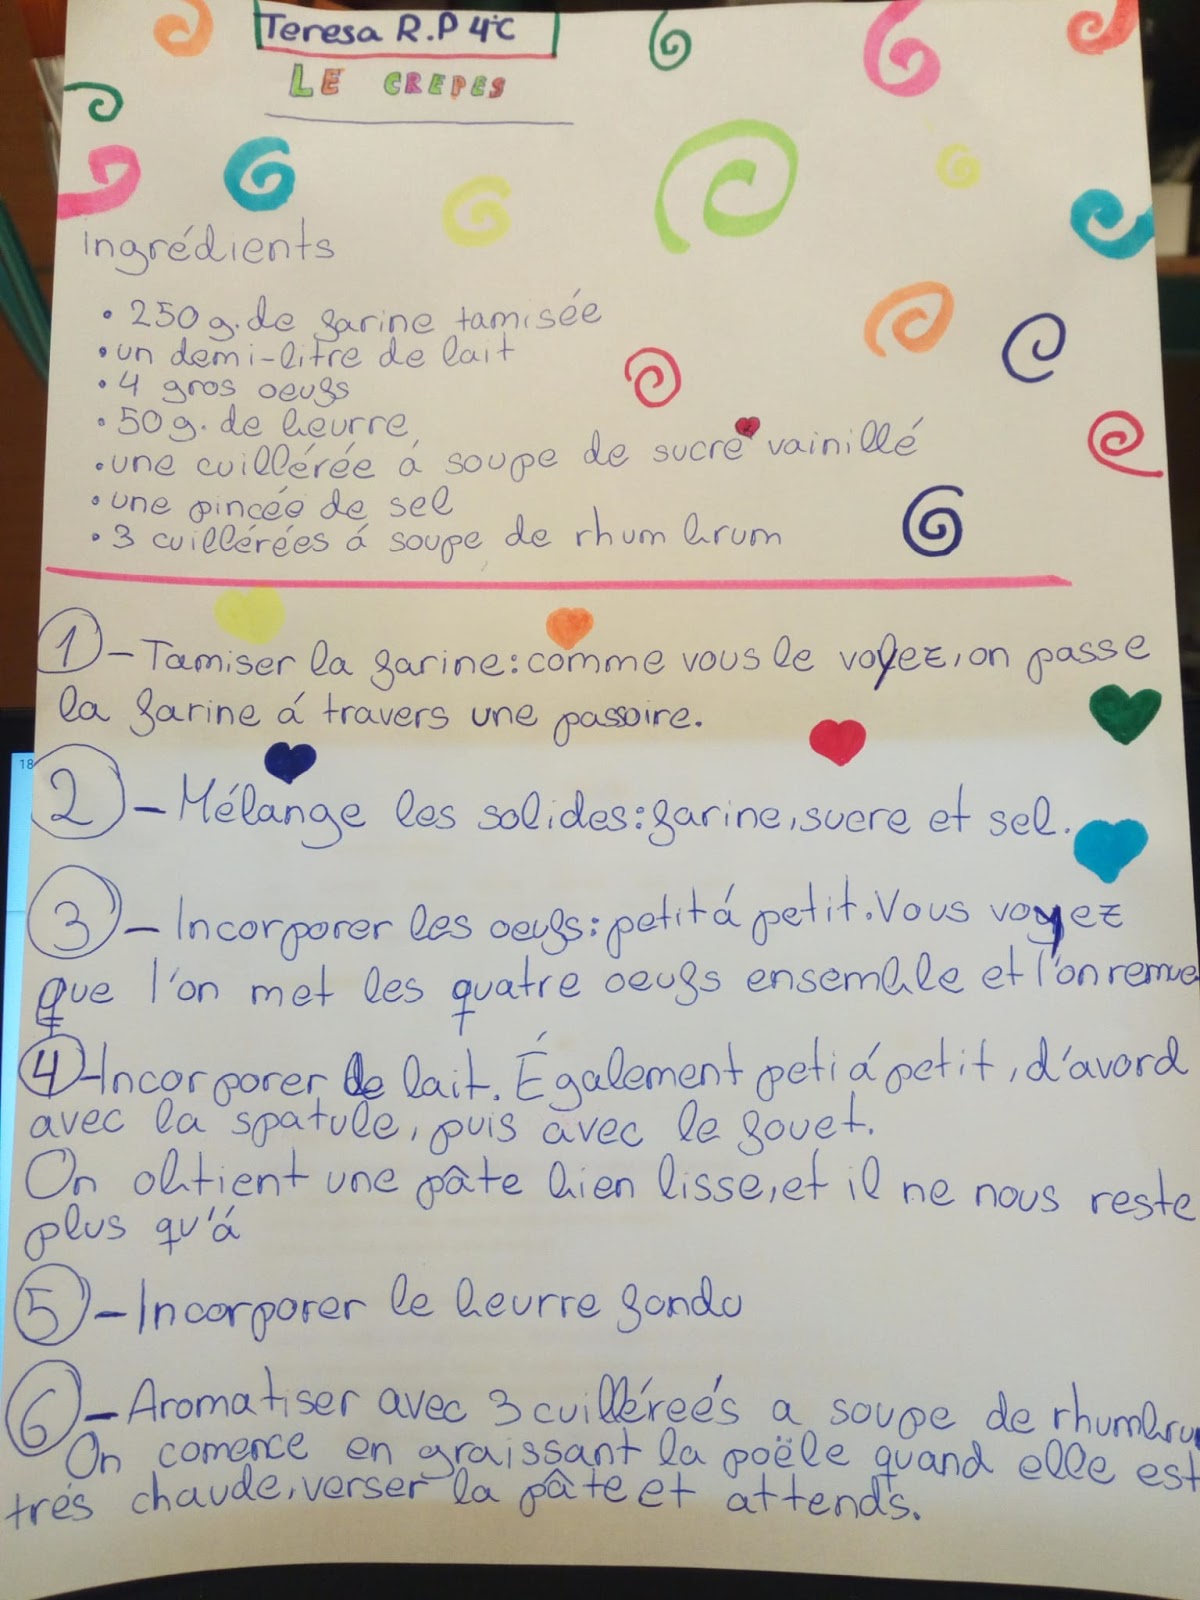 Teresa R.P 4ºC
LE CREPES
Ingrédients
• 250 g. de farine tamisée
• un demi-litre de lait
• 4 gros oeufs
• 50 g. de beurre
• une cuillérée á soupe de sucre vainillé
• une pincée de sel
• 3 cuillérées á soupe de rhum brum
1 - Tamiser la farine: comme vous le voyez, on passe
la farine á travers une passoire.
2 - Mélange les solides: farine, sucre et sel.
3 - Incorporer les oeufs: petit á petit. Vous voyez
que l'on met les quatre oeufs ensemble et l'on remue
4 - Incorporer le lait. Également peti á petit, d'avord
avec la spatule, puis avec le fouet.
On obtient une pâte bien lisse, et il ne nous reste
plus qu'á
5 - Incorporer le beurre fondu
6 - Aromatiser avec 3 cuilléreés a soupe de rhum bru
On comence en graissant la poële quand elle est
trés chaude, verser la pâte et attends.
18